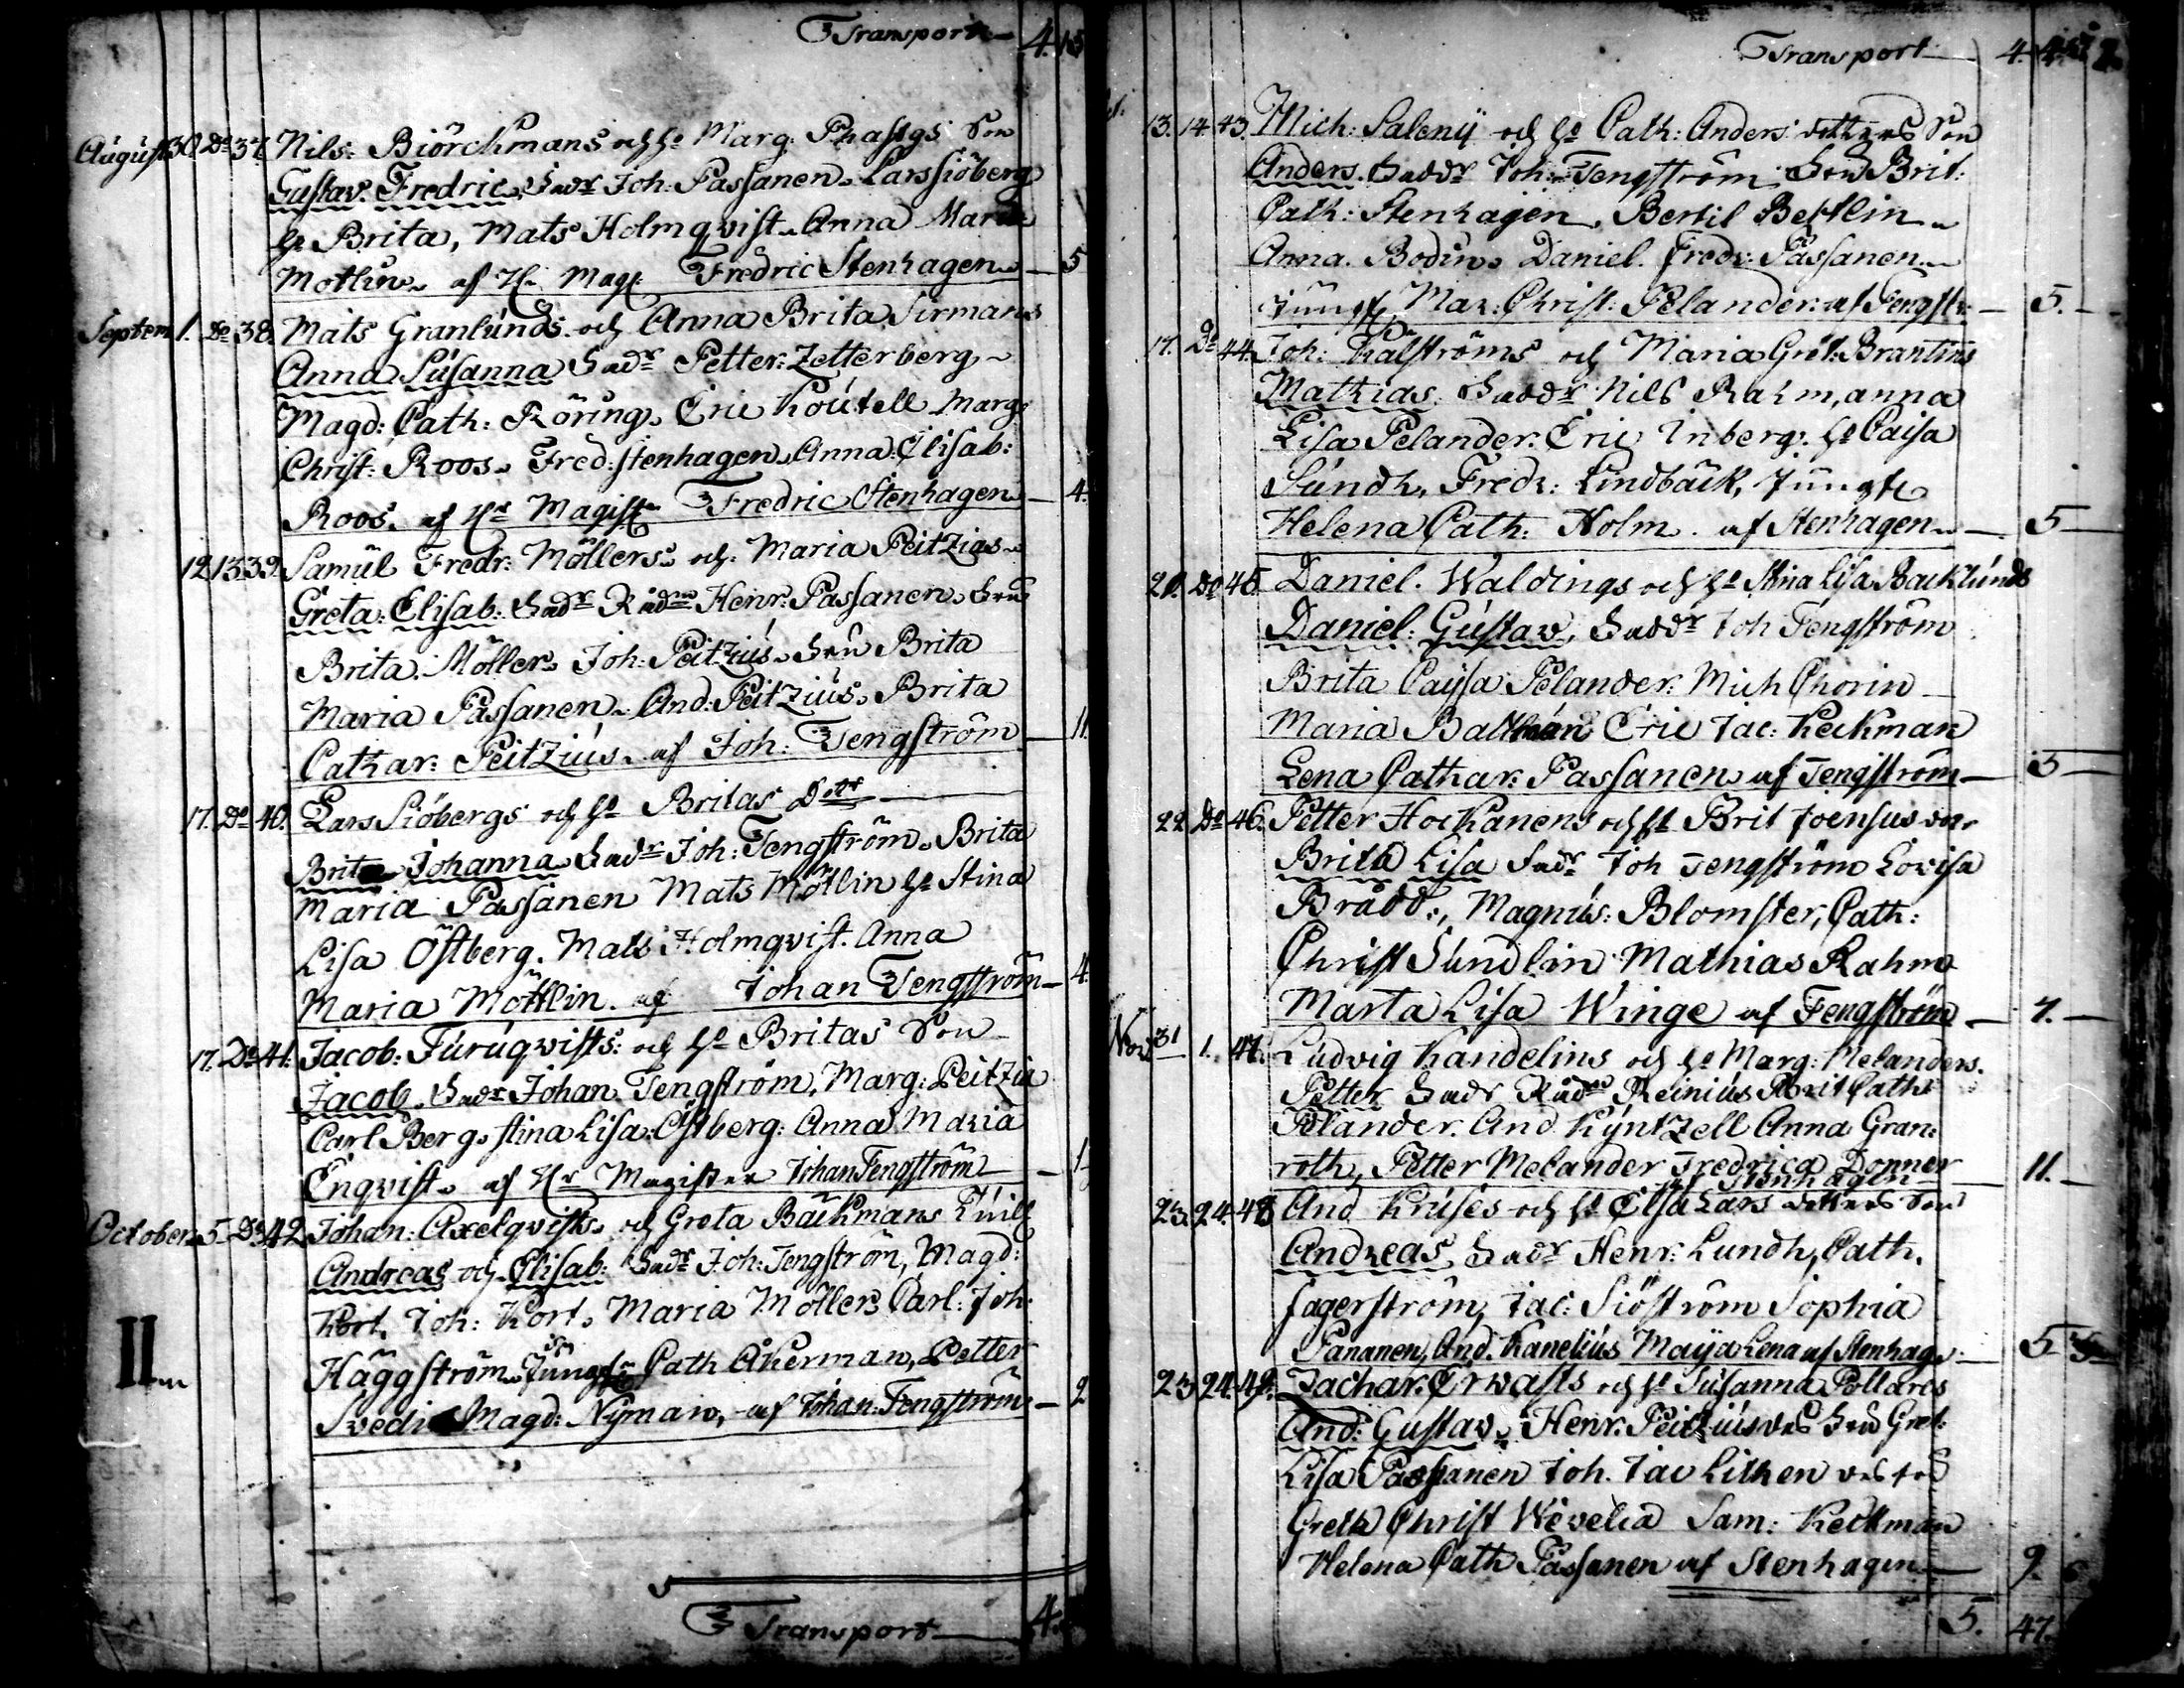 Transport 4. 15
August 30. Do 37. Nils: Biörckmans och h: Marg: Son
Gustav: Fredric, Fadr Joh: Passanen. Lars siöberg
h: Brita, Mats Holmqvist. Anna Maria
Motlin. af H: Mag: Fredric Stenhagen — 5
Septem 1. Do 38. Mats Granlúnds och Anna Brita Sirmans
Anna Súsanna Fadr Petter: Zetterberg
Magd: Cath: Röring. Eric Koútell Marg:
Christ: Roos. Fred: stenhagen. Anna: Elisab:
Roos. af Hr Magist: Fredric Stenhagen — 4.
12. 13. 39. Samúl Fredr: Möllers. och Maria Peitzias
Greta: Elisab: Fadr Rådm Henr: Passanen. Fru
Brita. Möller. Joh: Peitziús. Fru Brita
Maria Passanen. And: Peitziús. Brita
Cathar: Peitziús. af Joh: Tengström — 11.
17. Do 40. Lars Siöbergs och h: Britas Dottr
Brita Johanna Fadr Joh: Tengström. Brita
Maria Passanen Mats Mötlin h: Stina
Lisa Östberg. Mats Holmqvist. Anna
Maria Möttlin. af Johan Tengström — 4.
17. Do 41. Jacob: Fúrúqvists: och h: Britas Son
Jacob. Fadr Johan Tengström. Marg: Peitzia
Carl Berg. stina Lisa: Östberg: Anna Maria
Enqvist. af Hr Magister Johan Tengström — 1.
October. 5. Do 42. Johan: Axelqvists. och Greta Bäckmans
Andreas och Elisab: Fadr Joh: Tengström, Magd:
Kort. Joh: Kort. Maria Möller. Carl: Joh:
Häggström. Jungf: Cath Åkerman, Petter
Magd: Nyman, af Johan: Tengström — 2
II
Transport 4.
Transport 4.
13. 14. 43. Mich: Saleny och h: Cath: Anders dotters Son
Anders. Faddr Joh: Tengström. Fru Brit:
Cath: Stenhagen. Bertil Bettlin
Anna. Bodin. Daniel. Fredr: Passanen
Jungf: Mar: Christ: Pelander: af Tengstr: — 5.
17. Do 44. Joh: Kälströms och Maria Gret: Brantins
Mathias. Faddr Nils Rahm, anna
Lisa Pelander. Eric Inberg. h: Caisa
Súndh, Fredr: Lindbäck, Jungfr
Helena Cath: Holm. af Stenhagen — 5
20. Do 45 Daniel. Waldings och h: Stina Lisa Backlúnds
Daniel. Gústav. Faddr Joh Tengström
Brita Caysa Pelander. Mich Chorin
Maria Eric Jac: Keckman
Lena Cathar: Passanen af Tengström — 5
22 Do 46. Petter Hockanens och h: Brit Joensus dor
Brita Lisa Fadr Joh Tengström Lovisa
Brådd., Magnús: Blomster, Cath:
Christ Súndlin Mathias Rahm
Marta Lisa Winge af Tengström — 7.
Nov 31 1. 47. Lúdvig Kandelins och h: Marg: Melanders.
Petter Fadr Rådm Reinius Brit Cath:
Pelander. And. Kyntzell Anna Gran:
roth, Petter Melander Fredrica Donner
af Stenhagen — 11.
23. 24. 48 And Krúses och h: Elsa Lars dotters Son
Andreas, Fadr Henr: Lundh, Cath.
Fagerström, Jac: Siöström Sophia
Pananen, And. Kaneliús Maija Lena af Stenhag. — 5
23 24. 49. Zachar: Erwasts och h: Súsanna Pollares
And: Gustav. Henr. Peitziús Fru Gret:
Lisa Passanen Joh. Jac Lithen
Greta Christ Wevelia Sam: Keckman
Helena Cath Passanen af Stenhagen — 9.
5. 47.